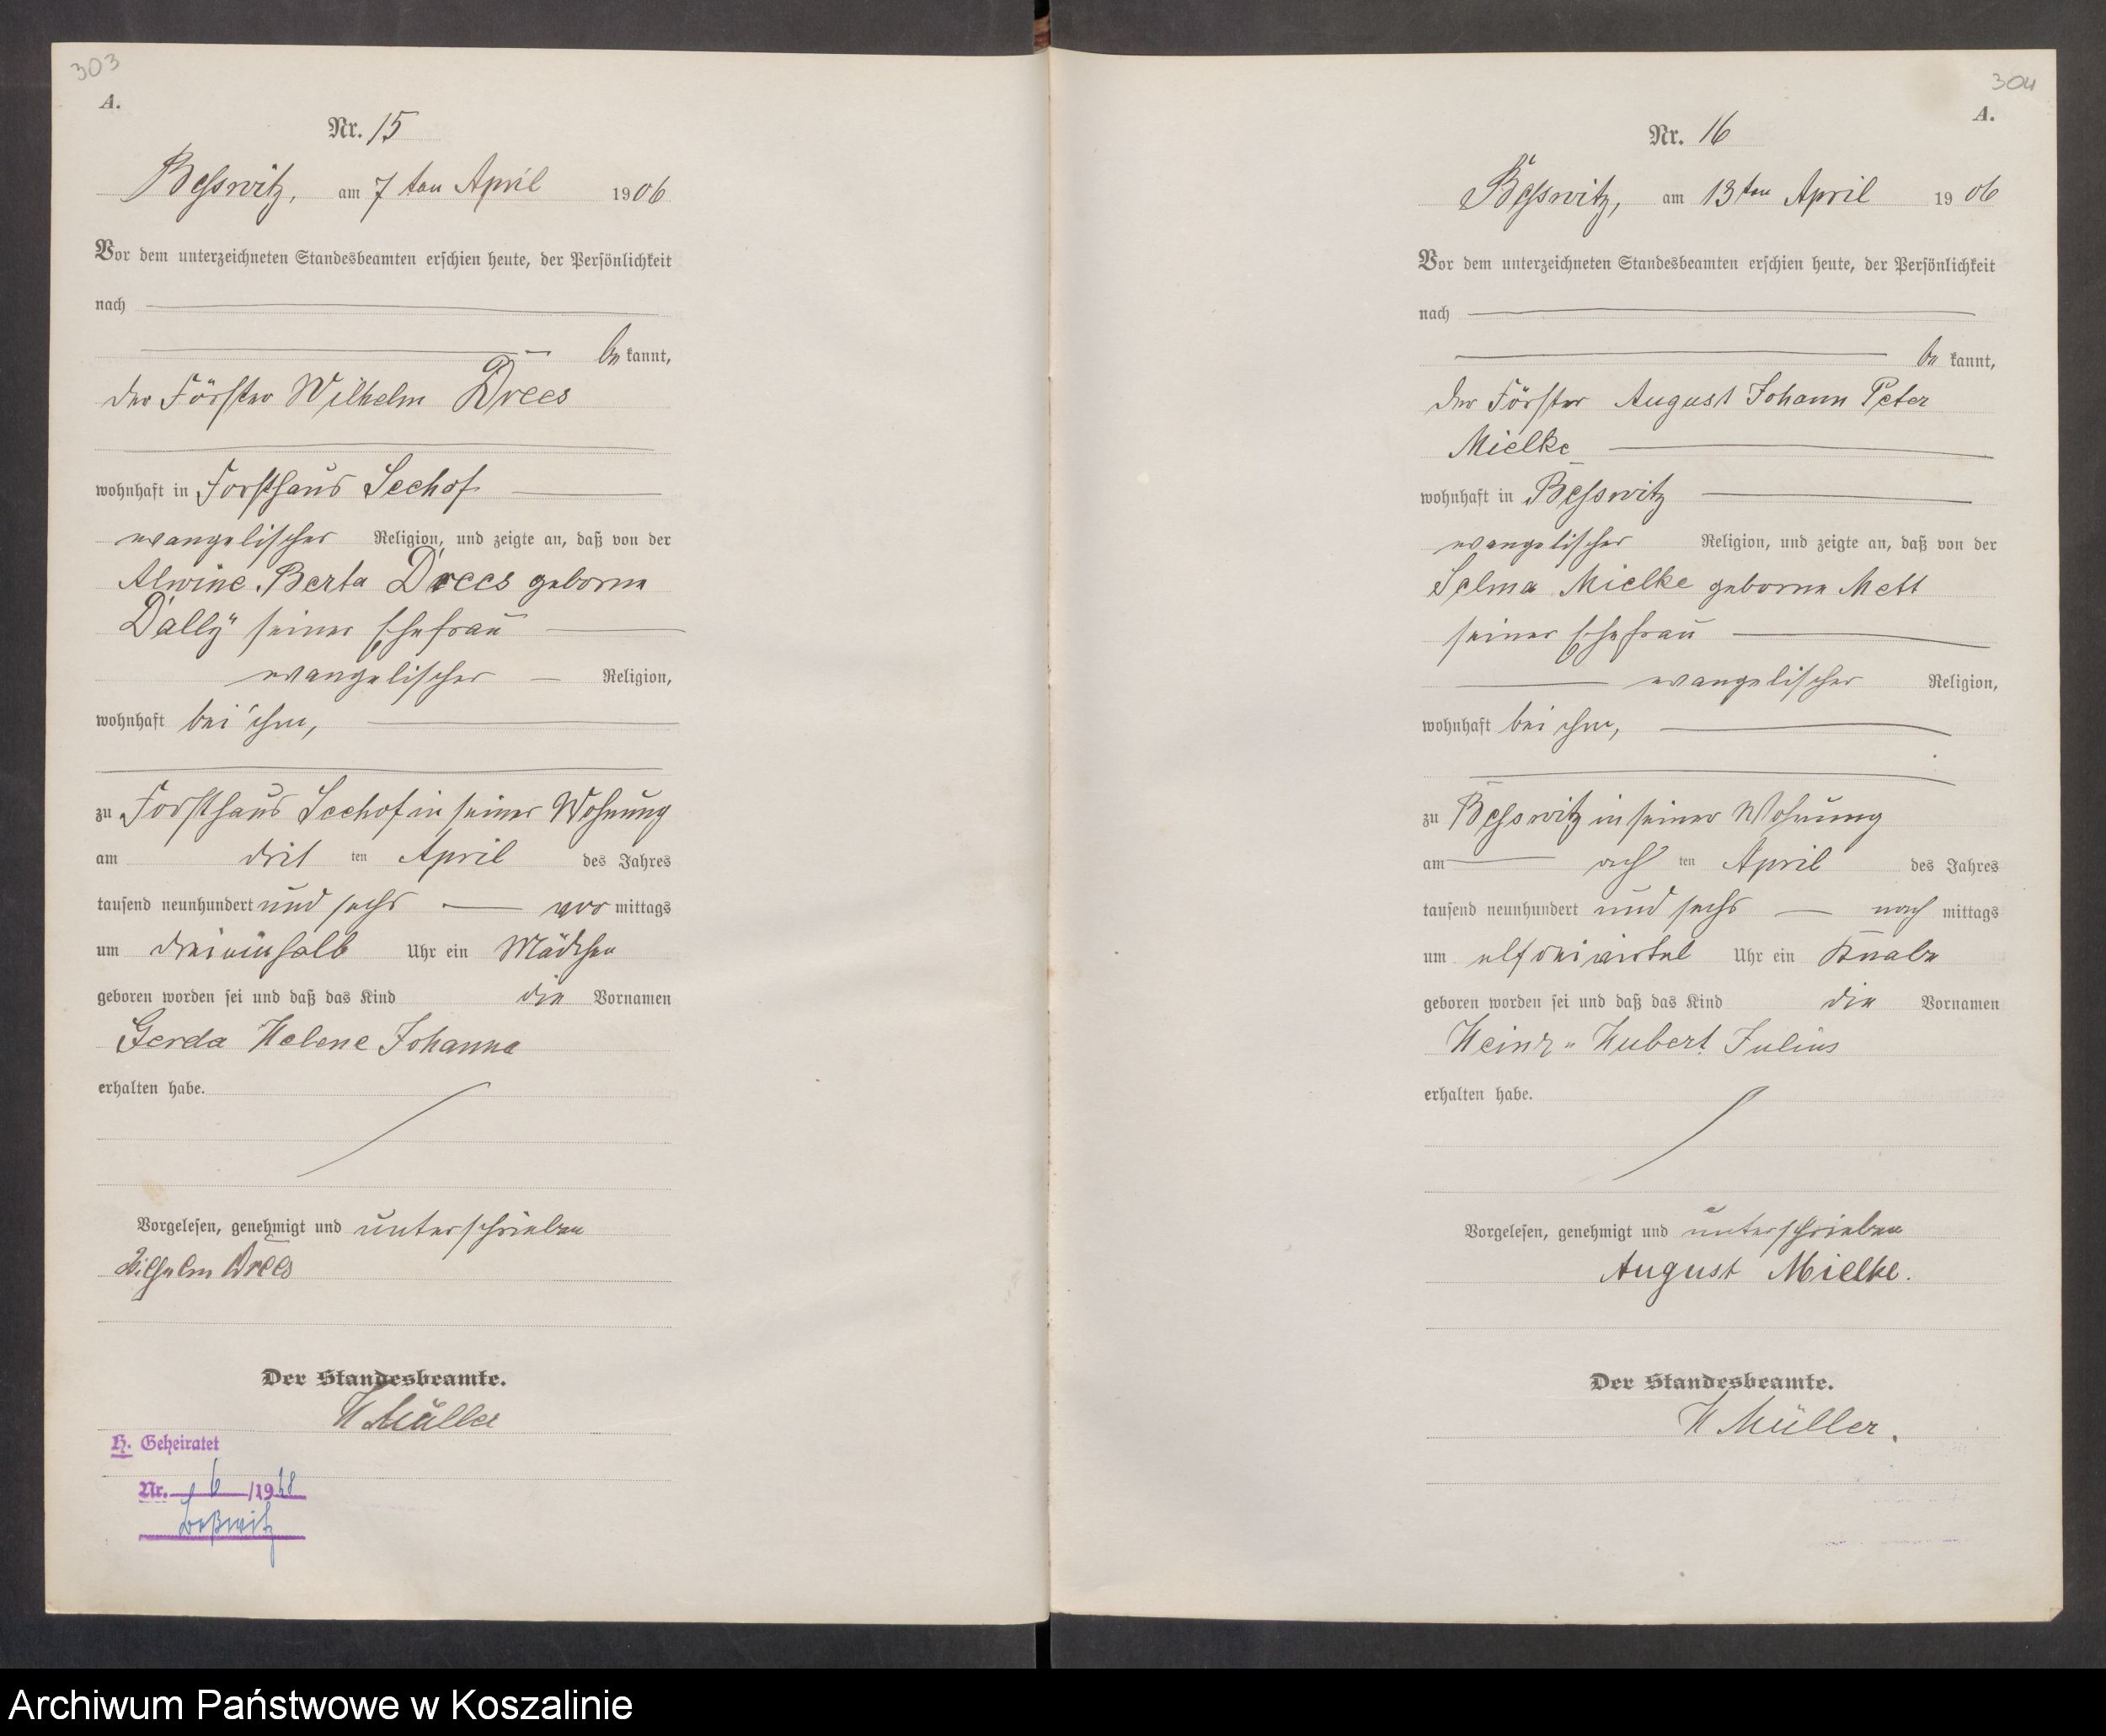 303
A.
Nr. 15
Besswitz, am 7 ten April 1906
Vor dem unterzeichneten Standesbeamten erschien heute, der Persönlichkeit
nach
be kannt,
der Förster Wilhelm Drees
wohnhaft in Forsthaus Seehof
evangelischer Religion, und zeigte an, daß von der
Alwine Berta Drees geborne
Dally seiner Ehefrau
evangelischer Religion,
wohnhaft bei ihm,
zu Forsthaus Seehof in seiner Wohnung
am drit ten April des Jahres
tausend neunhundert und sechs vor mittags
um dreieinhalb Uhr ein Mädchen
geboren worden sei und daß das Kind die Vornamen
Gerda Helene Johanna
erhalten habe.
Vorgelesen, genehmigt und unterschrieben
Wilhelm Drees
Der Standesbeamte.
H Müller
H. Geheiratet
Nr. 6 /19
Beßwitz
304
A.
Nr. 16
Besswitz, am 13 ten April 1906
Vor dem unterzeichneten Standesbeamten erschien heute, der Persönlichkeit
nach
be kannt,
der Förster August Johann Peter
Mielke
wohnhaft in Besswitz
evangelischer Religion, und zeigte an, daß von der
Selma Mielke geborne Mett
seiner Ehefrau
evangelischer Religion,
wohnhaft bei ihm,
zu Besswitz in seiner Wohnung
am ach ten April des Jahres
tausend neunhundert und sechs nach mittags
um elfdreiviertel Uhr ein Knabe
geboren worden sei und daß das Kind die Vornamen
Heinz-Hubert Julius
erhalten habe.
Vorgelesen, genehmigt und unterschrieben
August Mielke.
Der Standesbeamte.
H Müller.
Archiwum Państwowe w Koszalinie